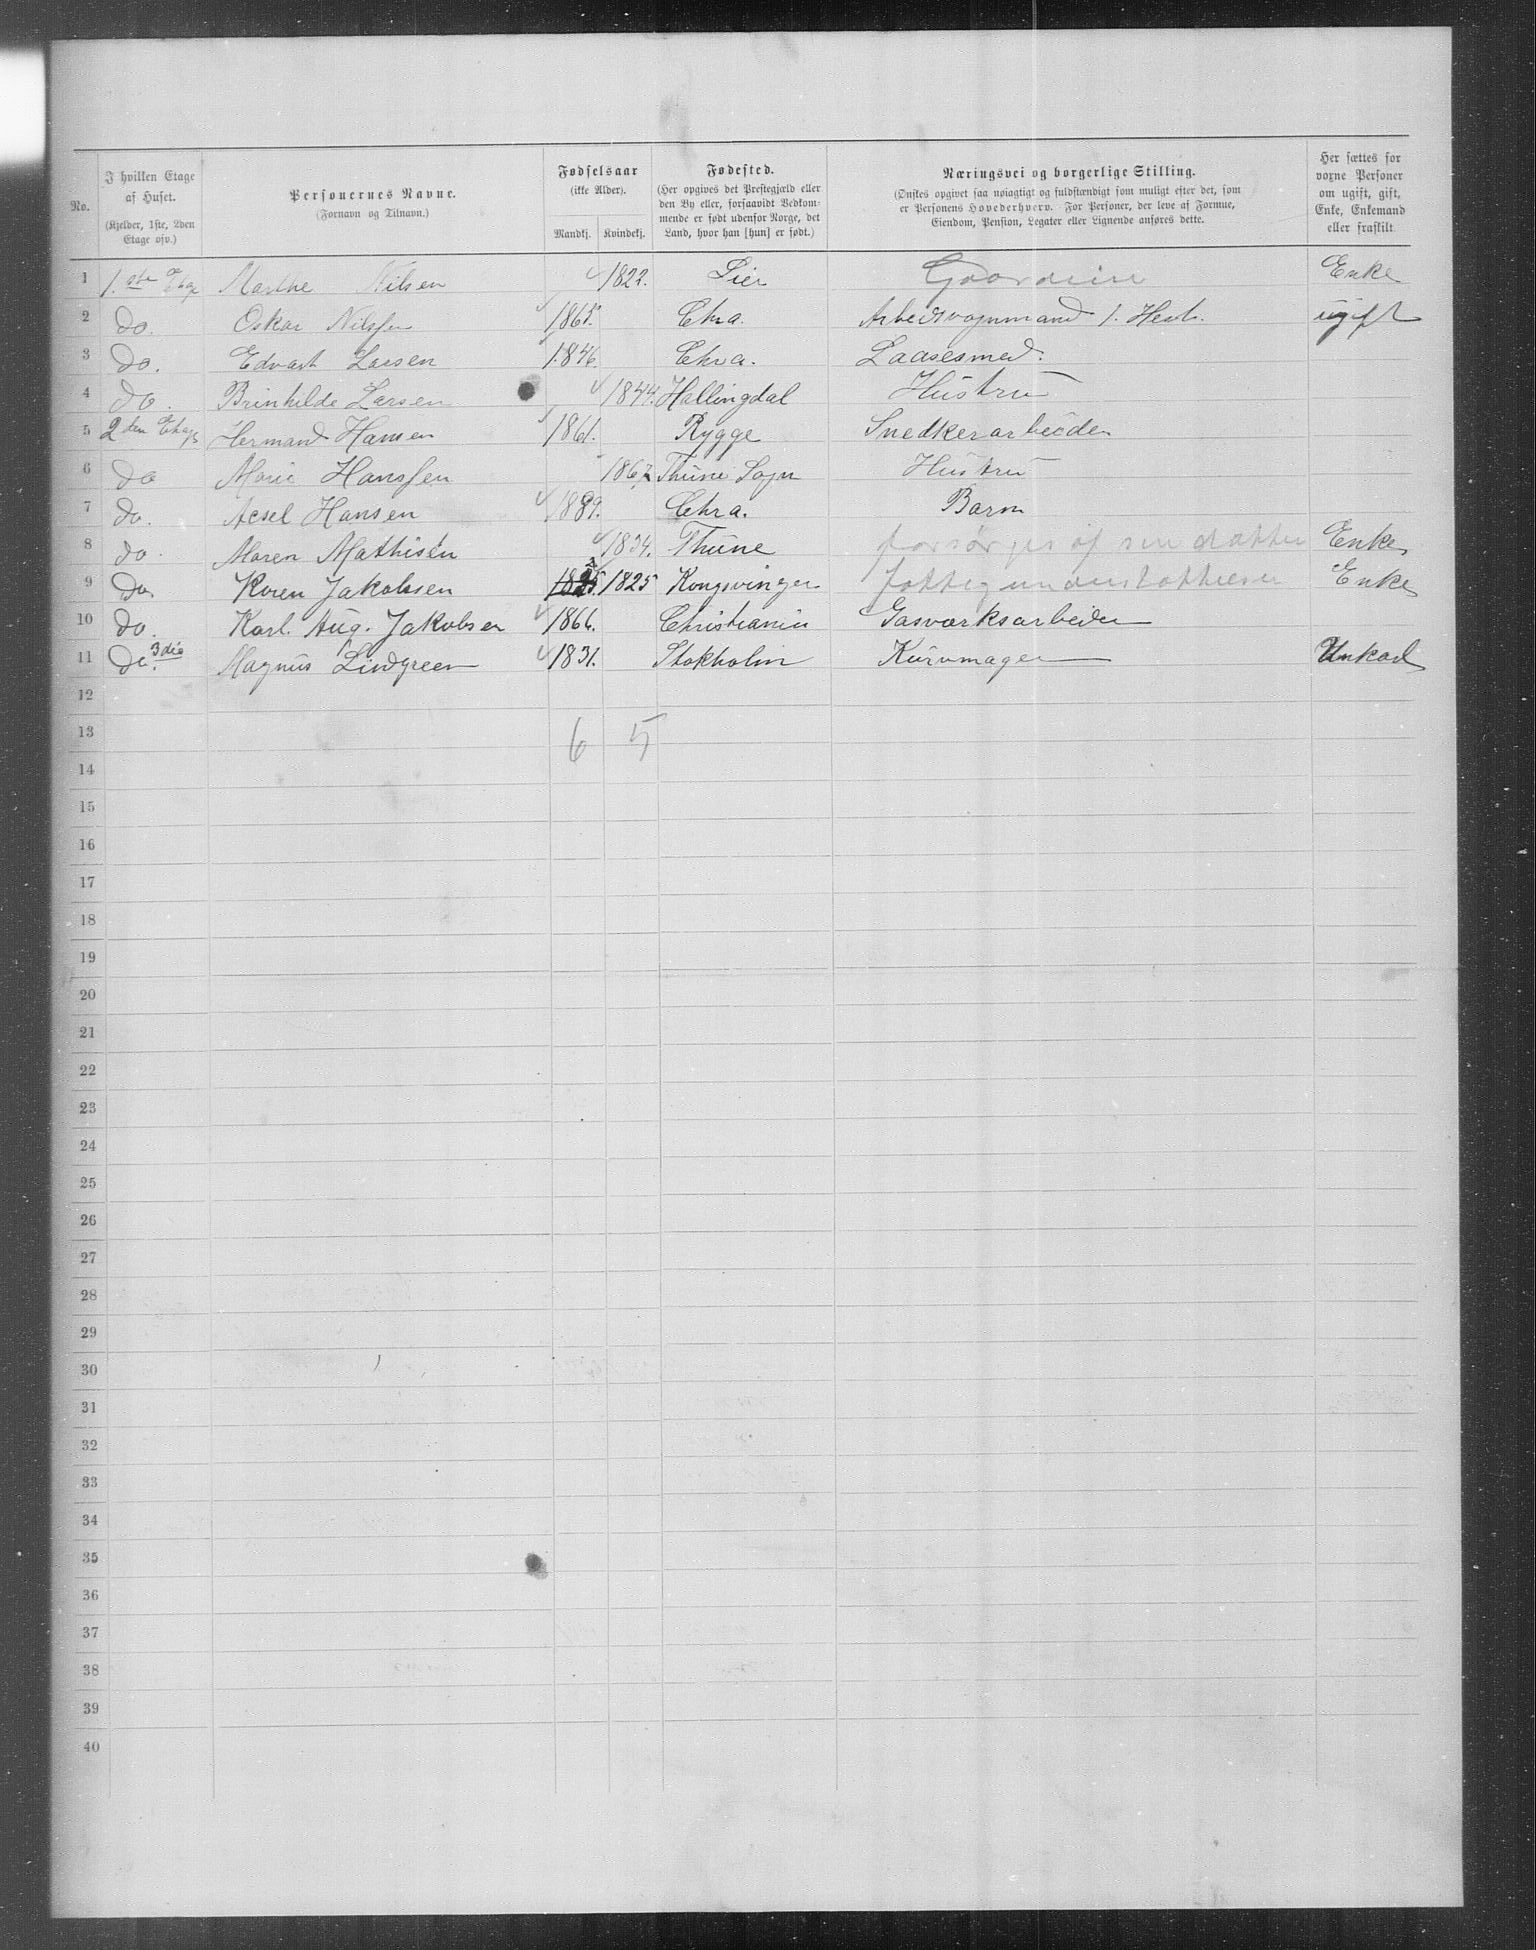 No. | I hvilken Etage af Huset. (Kjelder, 1ste, 2den Etage osv.) | Personernes Navne. (Fornavn og Tilnavn.) | Fødselsaar (ikke Alder). Mandkj. | Kvindekj. | Fødested. (Her opgives det Prestegjæld eller den By eller, forsaavidt Vedkommende er født udenfor Norge, det Land, hvor han [hun] er født.) | Næringsvei og borgerlige Stilling. (Ønskes opgivet saa nøiagtigt og fuldstændigt som muligt efter det, som er Personens Hovederhverv. For Personer, der leve af Formue, Eiendom, Pension, Legater eller Lignende anføres dette. | Her sættes for voxne Personer om ugift, gift, Enke, Enkemand eller fraskilt
1 1.ste Etage Marthe Nilsen 1822. Lier Enke
2 do. Oskar Nilssen 1865. Chra. Arbeidsvognmand 1. Hest. ugift
3 do. Edvart Larsen 1846. Chra. Laasesmed.
4 do. Brinhilde Larsen 1844. Hallingdal Hustru
5 2den Etage Hermand Hansen 1861. Rygge Snedkerarbeider
6 do Marie Hanssen 1867 Thune Sogn Hustru
7 do. Acsel Hansen 1889. Chra. Barn
8 do. Maren Mathisen 1834. Thune forsørges af sin datter Enke
9 do. Karen Jakobsen 1825. 1825 Kongsvinger fattigunderstøttelse Enke
10 do. Karl. Aug. Jakobsen 1866. Christiania Gasværksarbeider
11 do. 3die Magnus Lindgreen 1831. Stokholm Kurvmager
12
13 6 5
14
15
16
17
18
19
20
21
22
23
24
25
26
27
28
29
30
31
32
33
34
35
36
37
38
39
40